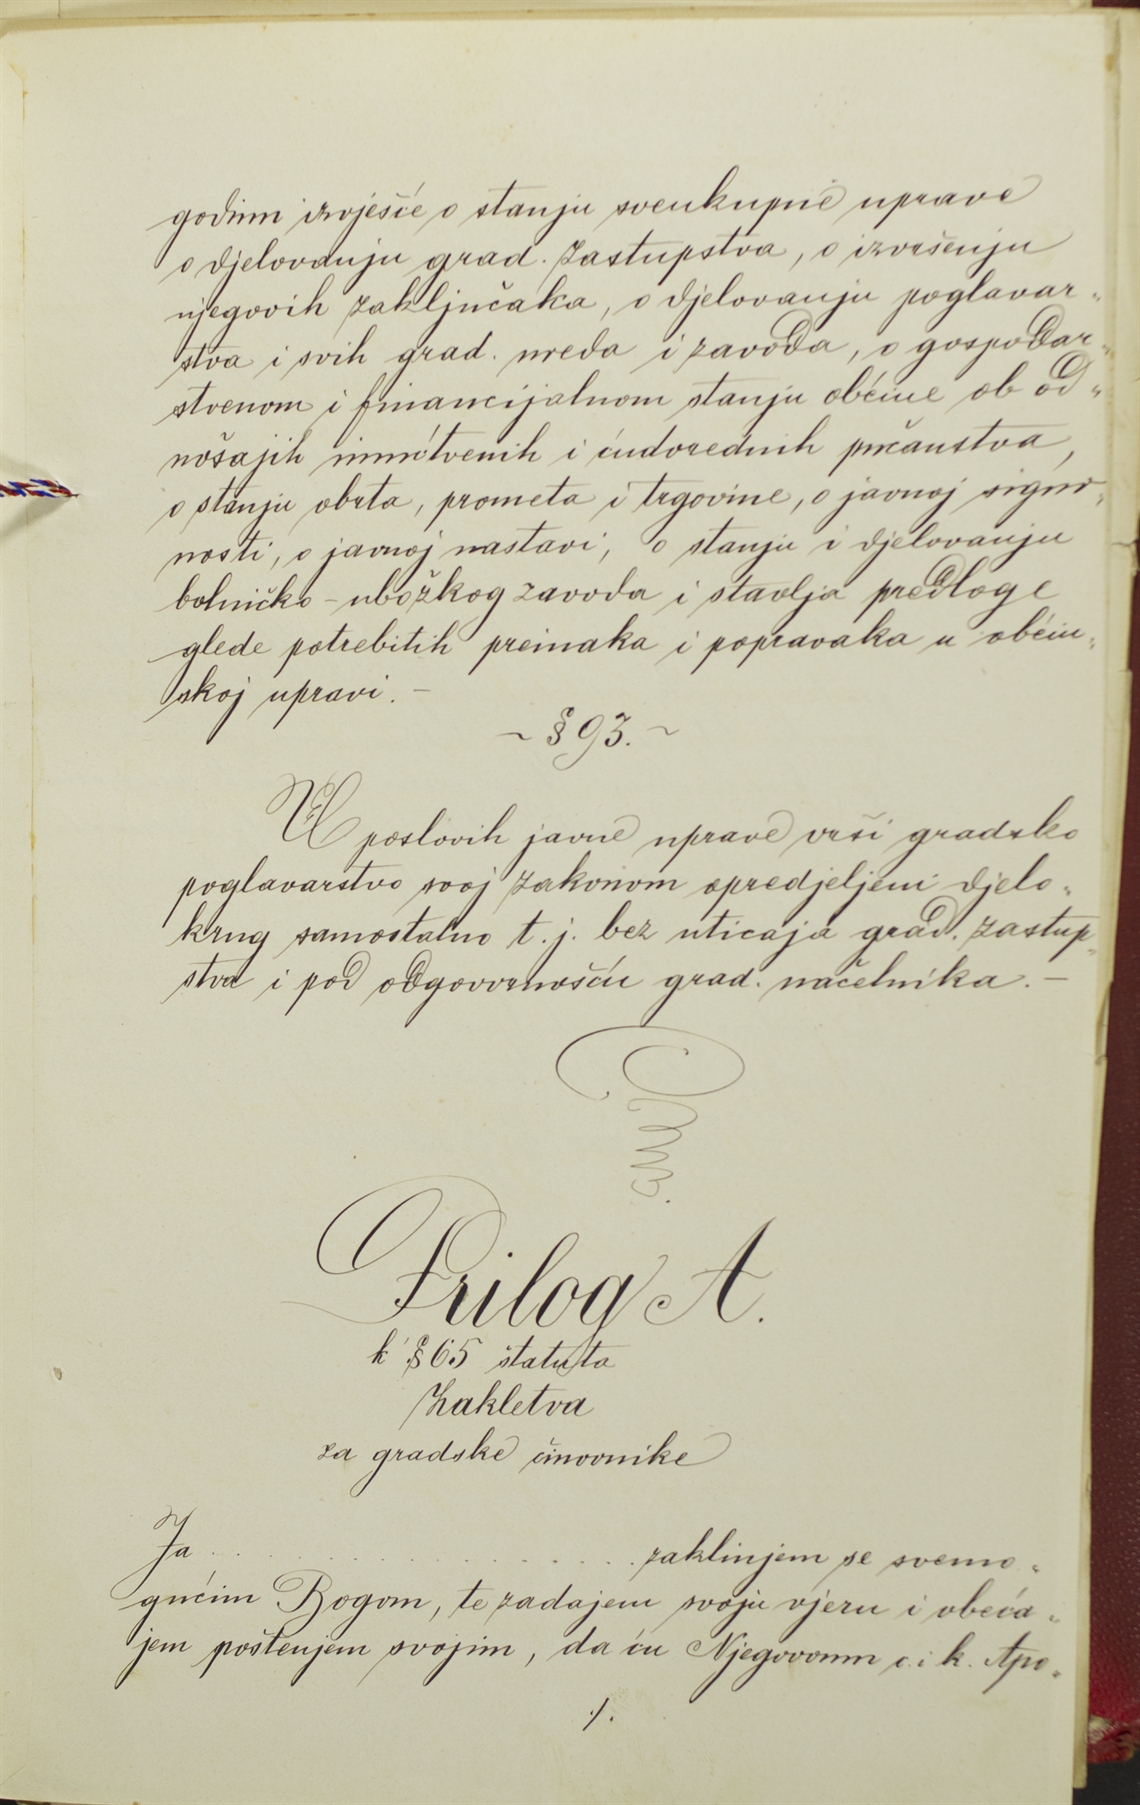 godinu izvješće o stanju sveukupne uprave
o djelovanju grad. zastupstva, o izvršenju
njegovih zaključaka, o djelovanju poglavar„
stva i svih grad. ureda i zavoda, o gospodar„
stvenom i financijalnom stanju obćine ob od„
nošajih imućtvenih i ćudorednih pučanstva,
o stanju obrta, prometa i trgovine, o javnoj sigur„
nosti, o javnoj nastavi, o stanju i djelovanju
bolničko-ubožkog zavoda i stavlja predloge
glede potrebitih preinaka i popravaka u obćin„
skoj upravi. –
~ § 93. ~
U poslovih javne uprave vrši gradsko
poglavarstvo svoj zakonom opredjeljeni djelo„
krug samostalno t. j. bez uticaja grad. zastup„
stva i pod odgovornošću grad. načelnika. –
Prilog A.
k § 65 štatuta
Zakletva
za gradske činovnike
Ja . . . . . . . . . . . . . . . . zaklinjem se svemo„
gućim Bogom, te zadajem svoju vjeru i obeća„
jem poštenjem svojim, da ću Njegovomu c. i k. Apo„
./.